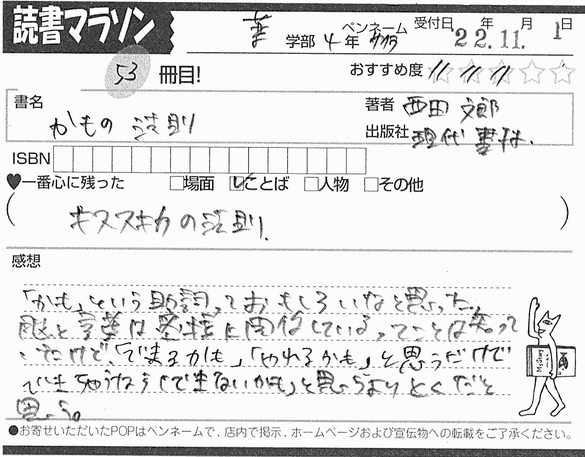 読書マラソン
学部 4年 ペンネーム 受付日 22年 11月 1日
53 冊目! おすすめ度
書名 かもの法則
著者 西田 文郎
出版社 現代書林.
ISBN
♥一番心に残った □場面 ☑ことば □人物 □その他
( キススキカの法則. )
感想
「かも」という助詞っておもしろいなと思った。
脳と言葉は密接に関係しているってことは知って
いたけど「できるかも」「やれるかも」と思うだけで
できちゃうなら「できないかも」と思うよりとくだと
思う。
●お寄せいただいたPOPはペンネームで、店内で掲示、ホームページおよび宣伝物への転載をご了承ください。